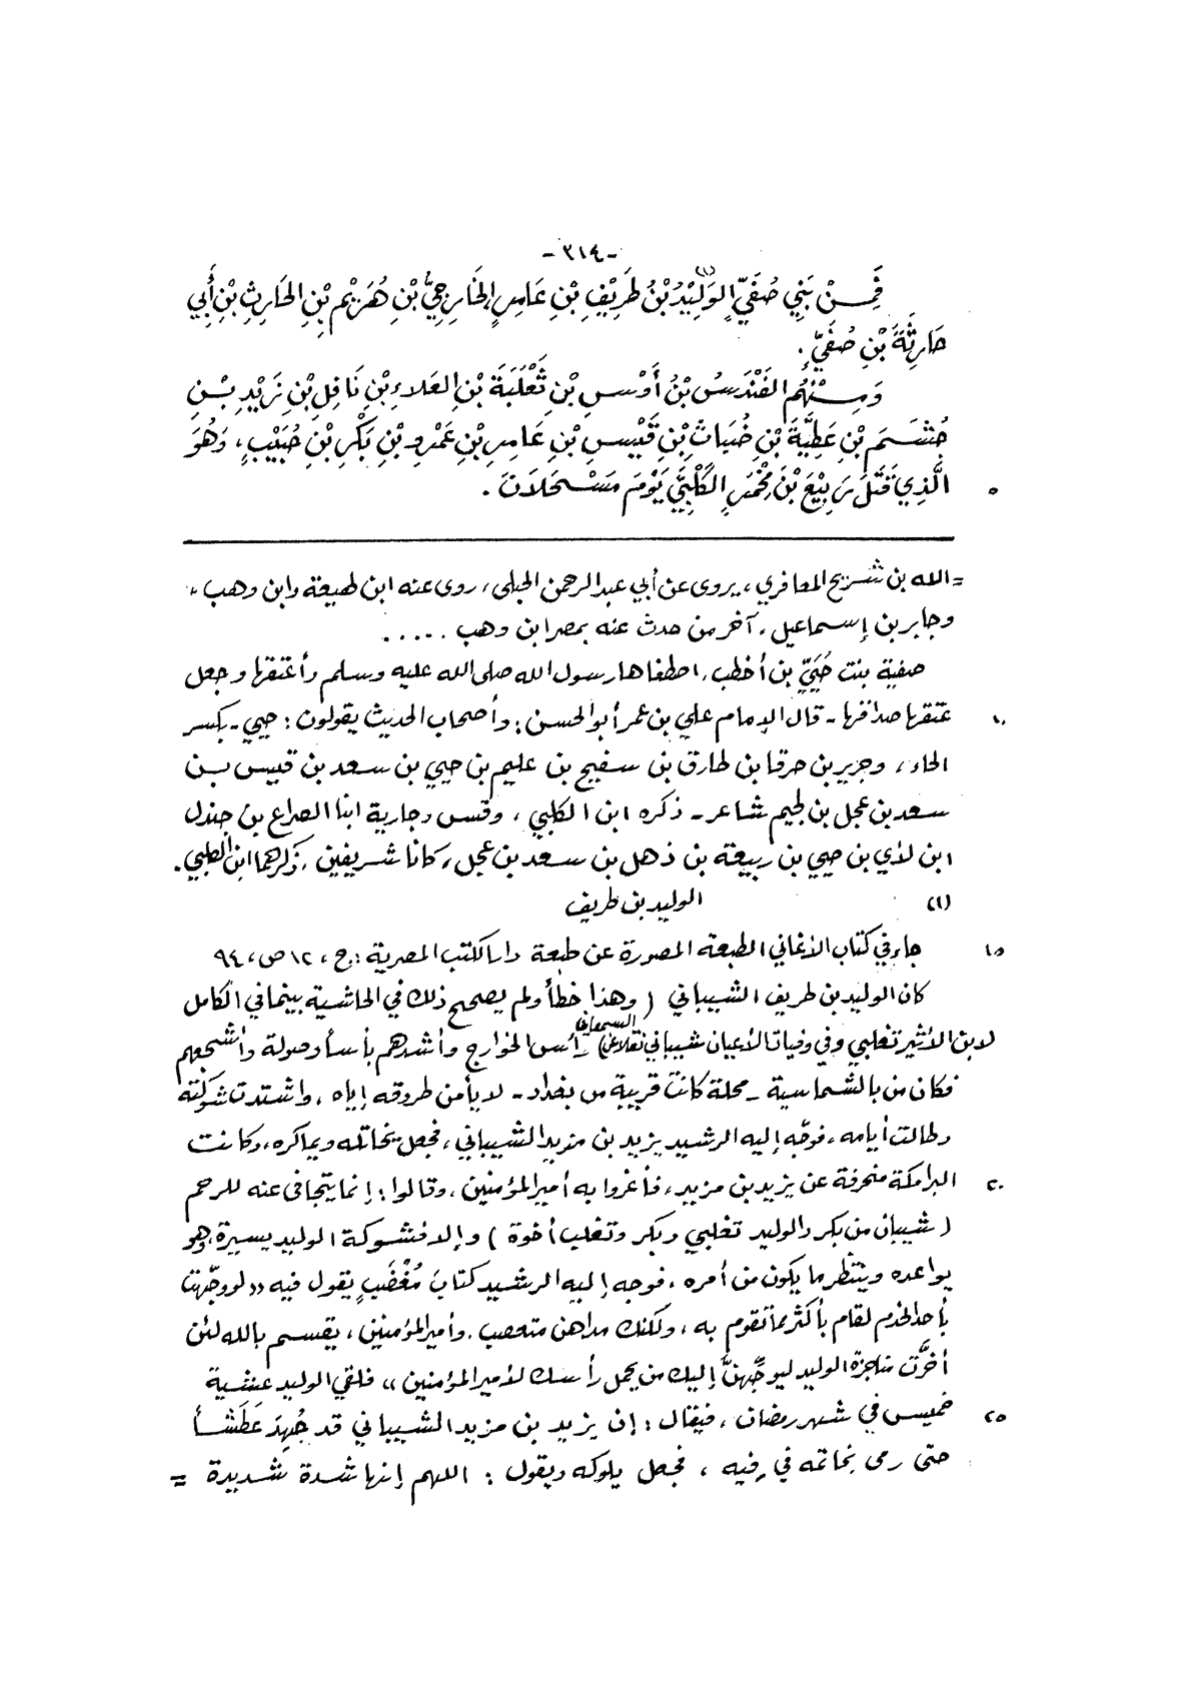 -٣١٤-
فَمِنْ بَنِي صُفَيٍّ الوَلِيْدُ(١) بْنُ طَرِيْفِ بْنِ عَامِرٍ الخَارِجِيُّ بْنِ هُرَيْمِ بْنِ الحَارِثِ بْنِ أَبِي
حَارِثَةَ بْنِ صُفَيٍّ.
وَمِنْهُم الفَنْدَسُ بْنُ أَوْسِ بْنِ ثَعْلَبَةَ بْنِ العَلاءِ بْنِ نَافِلِ بْنِ زَيْدِ بْنِ
جُشَمَ بْنِ عَطِيَّةَ بْنِ خُنَاثَ بْنِ قَيْسِ بْنِ عَامِرِ بْنِ عَمْرِو بْنِ بَكْرِ بْنِ حُبَيْبٍ، وَهُوَ
٥ الَّذِي قَتَلَ رَبِيْعَ بْنَ مِخْمَرٍ الكَلْبِيَّ يَوْمَ مَسْحَلَانَ.
= الله بن شريح المعافري، يروى عن أبي عبد الرحمن الحبلى، روى عنه ابن لهيعة وابن وهب،
وجابر بن إسماعيل، آخر من حدث عنه بمصر ابن وهب .....
صفية بنت حُيَيّ بن أخطب، اصطفاها رسول الله صلى الله عليه وسلم وأعتقها وجعل
١٠ عتقها صداقها - قال الإمام علي بن عمر أبو الحسن: وأصحاب الحديث يقولون: حيي - بكسر
الحاء، وجزير بن حرقا بن طارق بن سفيح بن عليم بن حيي بن سعد بن قيس بن
سعد بن عجل بن لجيم شاعر - ذكره ابن الكلبي، وقس وجارية ابنا الصراع بن جندل
ابن لأي بن حيي بن ربيعة بن ذهل بن سعد بن عجل، كانا شريفين، ذكرهما ابن الكلبي.
(١) الوليد بن طريف
١٥ جاء في كتاب الأغاني الطبعة المصورة عن طبعة دار الكتب المصرية: ج، ١٢ ص، ٩٤
كان الوليد بن طريف الشيباني (وهذا خطأ ولم يصحح ذلك في الحاشية بينما في الكامل
لابن الأثير تغلبي وفي وفيات الأعيان شيباني نقلا عن السمعاني) رأس الخوارج وأشدهم بأساً وصولة وأشجعهم
فكان من بالشماسية - محلة كانت قريبة من بغداد - لا يأمن طروقه إياه، واشتدت شوكته
وطالت أيامه، فوجّه إليه الرشيد يزيد بن مزيد الشيباني، فجعل يخاتله ويماكره، وكانت
٢٠ البرامكة منحرفة عن يزيد بن مزيد، فأغروا به أمير المؤمنين، وقالوا: إنما يتجافى عنه للرحم
(شيبان من بكر والوليد تغلبي وبكر وتغلب أخوة) وإلا فشوكة الوليد يسيرة، وهو
يواعده وينتظر ما يكون من أمره، فوجه إليه الرشيد كتابَ مُغْضَبٍ يقول فيه «لو وجّهت
بأحد الخدم لقام بأكثر مما تقوم به، ولكنك مداهن متعصب، وأمير المؤمنين، يقسم بالله لئن
أخّرت مناجزة الوليد ليوجّهنَّ إليك من يحمل رأسك لأمير المؤمنين» فلقي الوليد عشية
٢٥ خميس في شهر رمضان، فيقال: إن يزيد بن مزيد الشيباني قد جُهِدَ عَطَشاً
حتى رمى بخاتمه في فيه، فجعل يلوكه ويقول: اللهم إنها شدة شديدة =